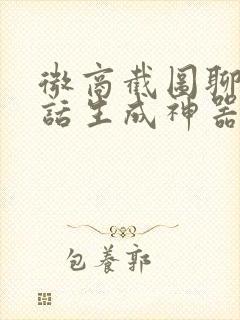 微商截图聊
話生成神器
包養郭